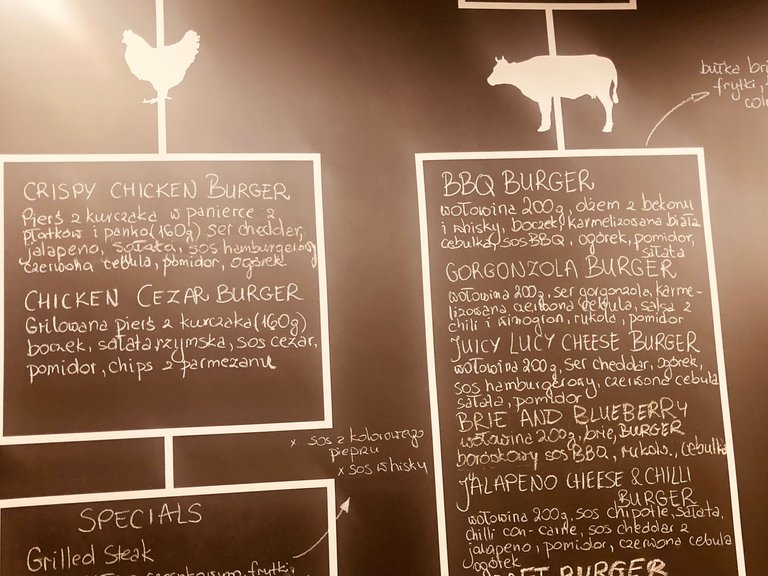 CRISPY CHICKEN BURGER
Pierś z kurczaka w panierce z
płatków i panko (160g) ser cheddar,
jalapeno, sałata, sos hamburgerowy
czerwona cebula, pomidor, ogórek
CHICKEN CEZAR BURGER
Grilowana pierś z kurczaka (160g)
boczek, sałata rzymska, sos cezar,
pomidor, chips z parmezanu
x sos z kolorowego
pieprzu
x sos whisky
SPECIALS
Grilled Steak
frytki,
bułka
frytki,
BBQ BURGER
wołowina 200g, dżem z bekonu
i whisky, boczek, karmelizowana biała
cebulka, sos BBQ, ogórek, pomidor,
sałata
GORGONZOLA BURGER
wołowina 200g, ser gorgonzola, karme-
lizowana czerwona cebula, salsa z
chili i winogron, rukola, pomidor
JUICY LUCY CHEESE BURGER
wołowina 200g, ser cheddar, ogórek,
sos hamburgerowy, czerwona cebula
sałata, pomidor
BRIE AND BLUEBERRY
BURGER
wołowina 200g, brie,
sos BBQ, rukola, cebulka
JALAPENO CHEESE & CHILLI
BURGER
wołowina 200g, sos chipotle, sałata,
chilli con-carne, sos cheddar z
jalapeno, pomidor, czerwona cebula
ogórek
BURGER